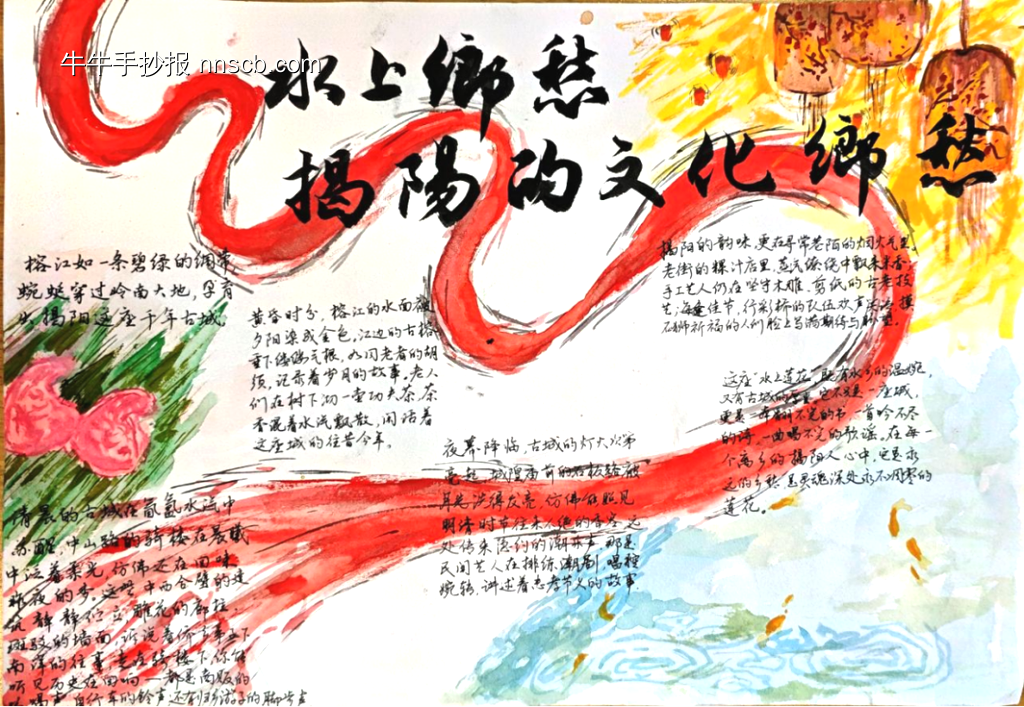 牛牛手抄报 nnscb.com
水上鄉愁
揭陽的文化鄉愁
榕江如一条碧绿的绸带,
蜿蜒穿过岭南大地,孕育
出揭阳这座千年古城。
黄昏时分,榕江的水面被
夕阳染成金色,江边的古榕
垂下缕缕气根,如同老者的胡
须,记录着岁月的故事。老人
们在树下沏一壶功夫茶,茶
香混着水汽飘散,闲话着
这座城的往昔今年。
揭阳的韵味,更在寻常巷陌的烟火气里。
老街的粿汁店里,蒸汽缭绕中飘来米香,
手工艺人仍在坚守木雕、剪纸的古老技
艺;每逢佳节,行彩桥的队伍欢声
石狮祈福的人们脸上写满期待与
这座“水上莲花”,既有水乡的温婉,
又有古城的 它不只是一座城,
更是一本翻不完的书,一首吟不尽
的诗,一曲唱不完的歌谣。在每一
个离乡的揭阳人心中,它是永
远的乡愁,是灵魂深处永不凋零的
莲花。
夜幕降临,古城的灯火次第
亮起。城隍庙前的石板路被
月光洗得发亮,仿佛能照见
明清时节往来人绝的香客。远
处传来隐约的潮乐声,那是
民间艺人在排练潮剧,唱腔
婉转,讲述着忠孝节义的故事。
清晨的古城在氤氲水汽中
苏醒,中山路的骑楼在晨曦
中泛着柔光,仿佛还在回味
昨夜的梦。这些中西合璧的建
筑静静伫立,雕花的廊柱,
斑驳的墙面,诉说着侨 下
南洋的往事。走在骑楼下,你能
听见历史在回响——都是商贩的
吆喝声,自行车的铃声,还有 游子的脚步声